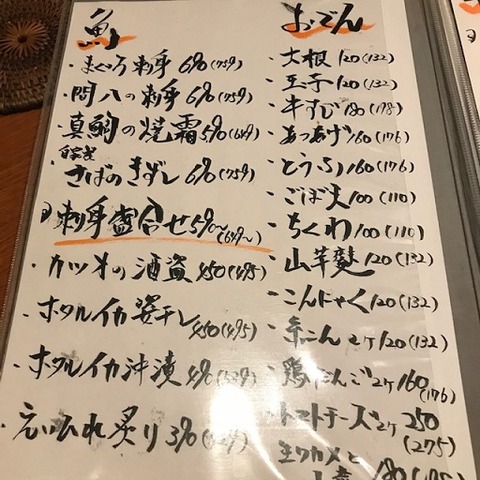 魚
・まぐろ刺身 690(759)
・間八の刺身 690(759)
・真鯛の焼霜 590(649)
自家製
・さばのきずし 690(759)
刺身盛合せ 590~(649~)
・カツオの酒盗 450(495)
・ホタルイカ姿干し 450(495)
・ホタルイカ沖漬 490(539)
・えいひれ炙り 390(429)
おでん
・大根 120(132)
・玉子 120(132)
・牛すじ 180(198)
・あつあげ 160(176)
・とうふ 160(176)
・ごぼ天 100(110)
・ちくわ 100(110)
・山芋麩 120(132)
・こんにゃく 120(132)
・糸こん 2ケ 120(132)
・鶏だんご 2ケ 160(176)
・トマトチーズ 2ケ 250(275)
生ワカメと